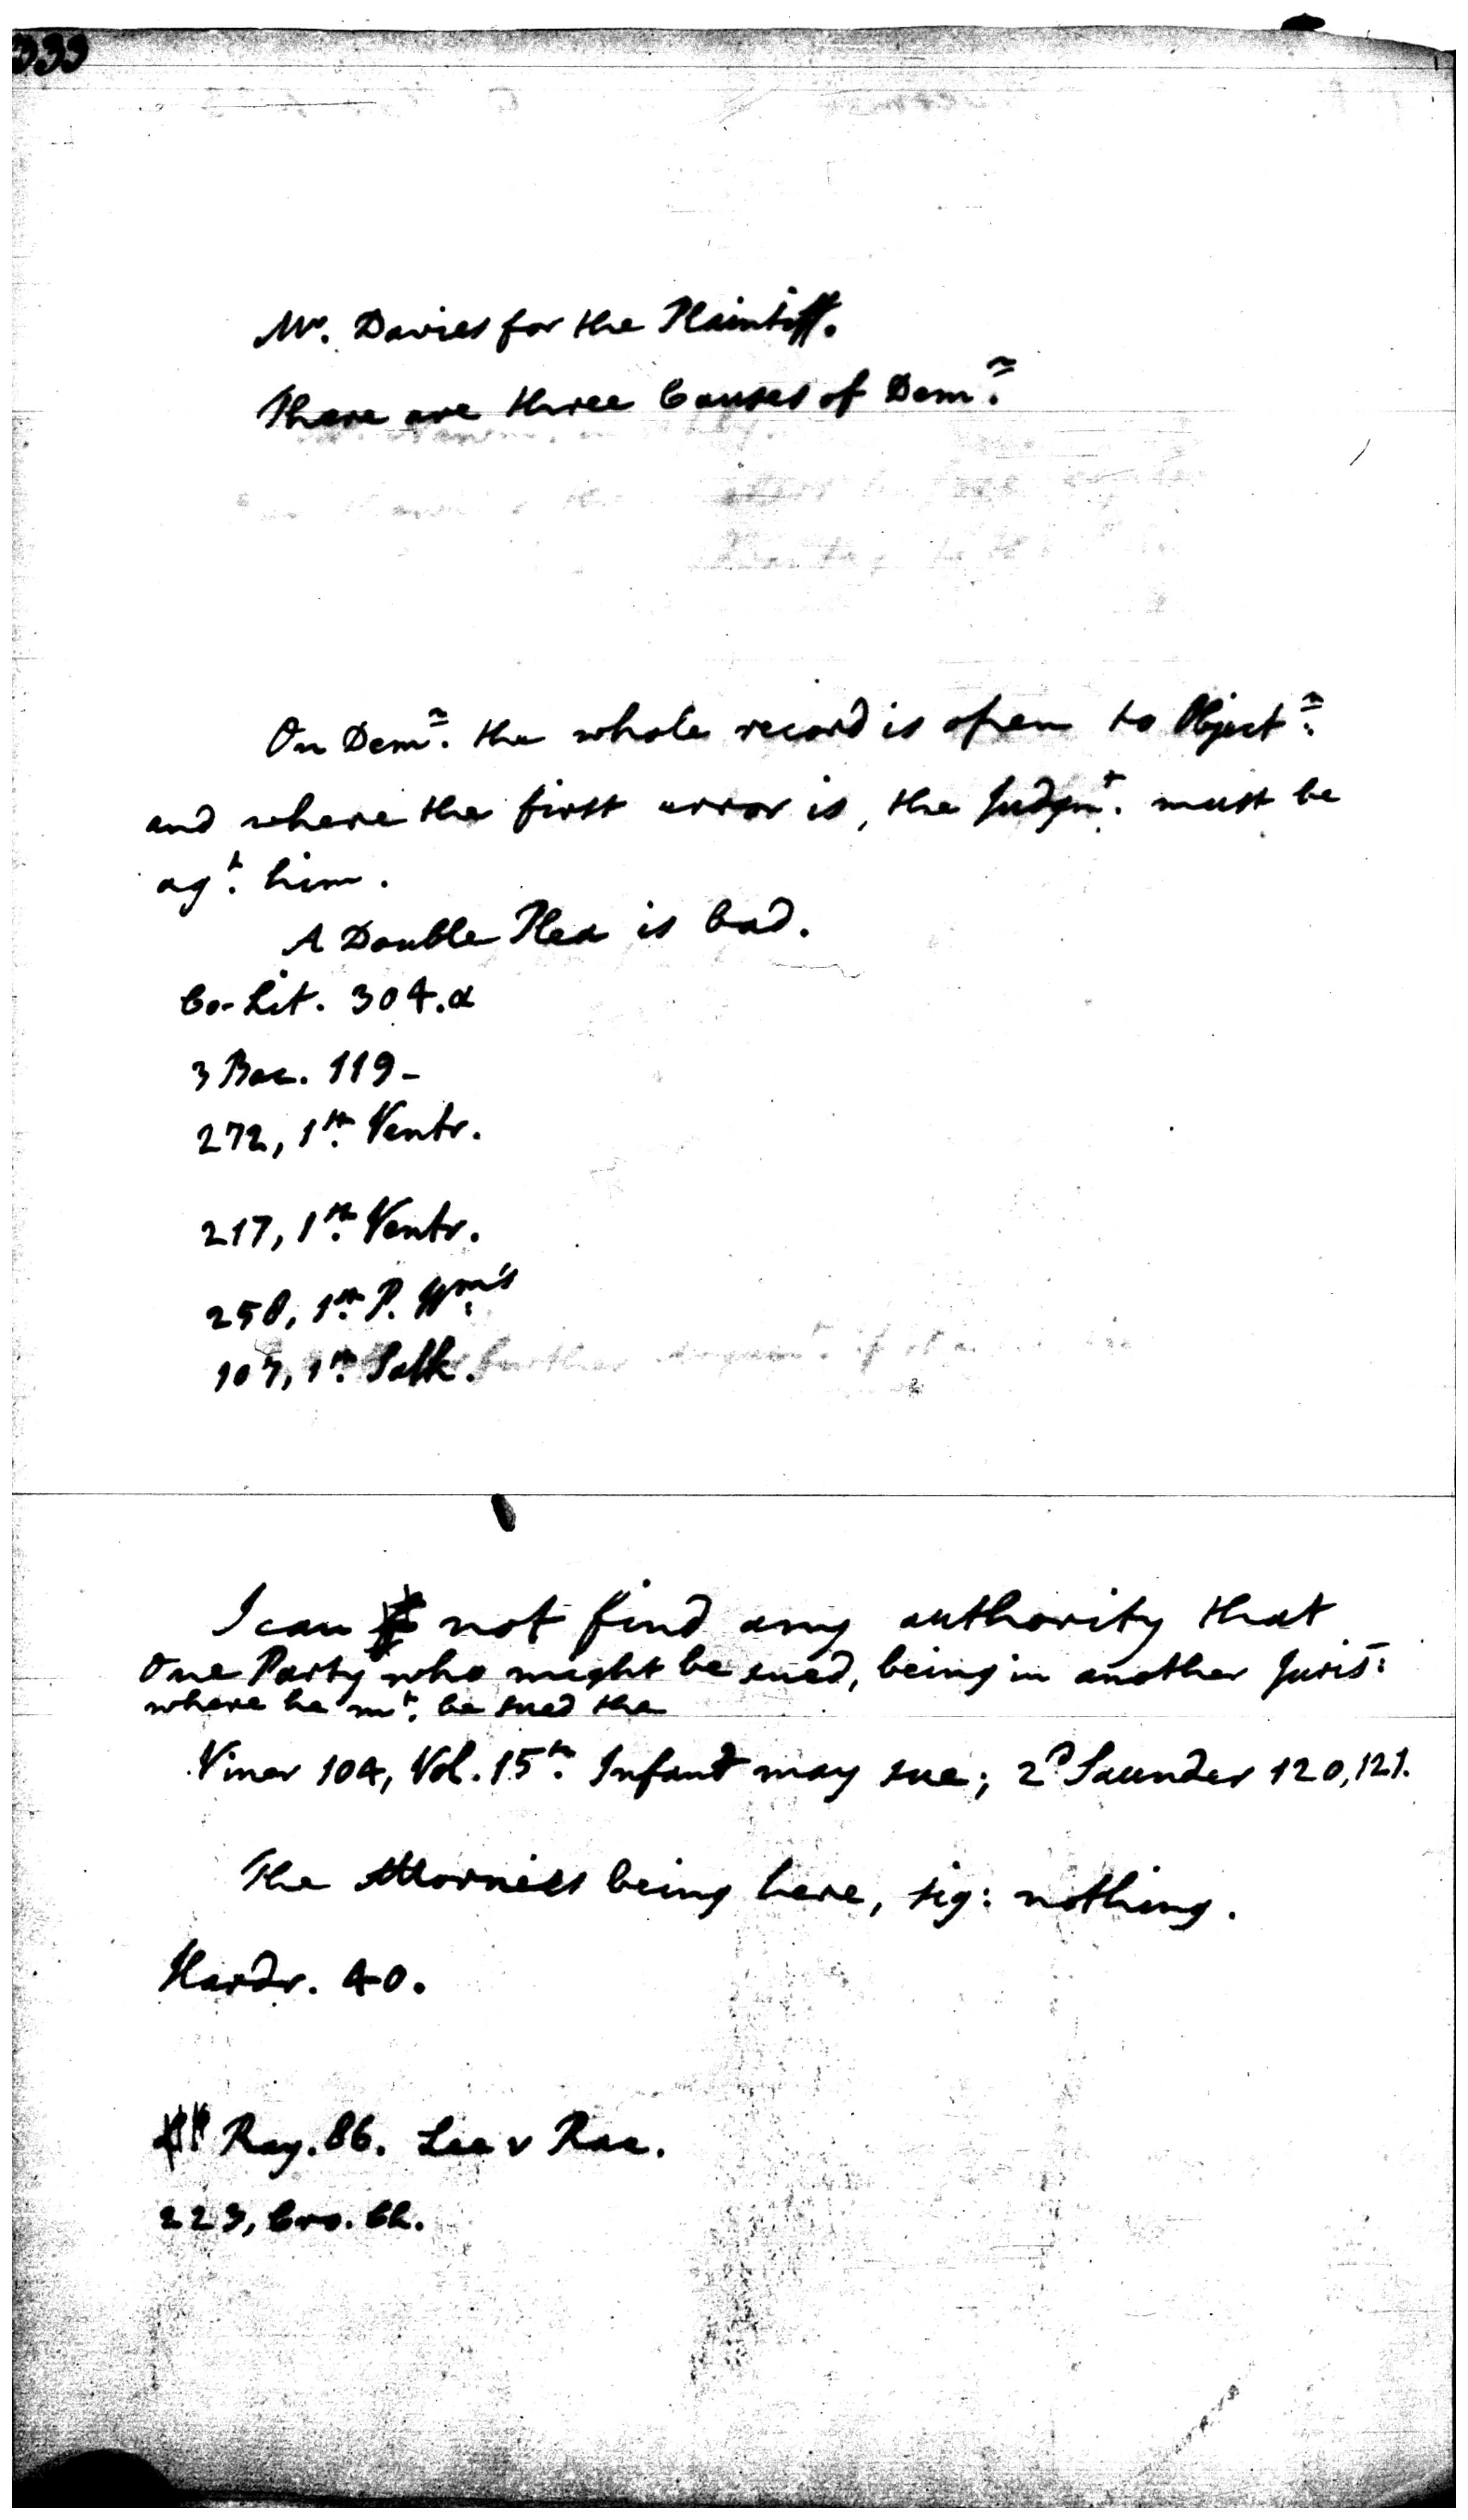 Mr. Davies for the Plaintiff.
There are three Causes of Demr.
On Demr. the whole record is open to Objectn.
and where the first error is, the Judgmt. must be
agt. him.
A Double Plea is bad.
Co-Lit. 304.a
3 Bac. 119-
272, 1st. Ventr.
217, 1st. Ventr.
258, 1st. P. Wm's
107, 1st. Salk.
I can not find any authority that
One Party who might be sued, being in another Juris:
where he mt. be sued the
Viner 104, Vol. 15th. Infant may sue; 2d Saunder 120, 121.
The Attornies being here, sig: nothing.
Hardr. 40.
Ray. 86. Lee v Rae.
223, Cro. Ch.